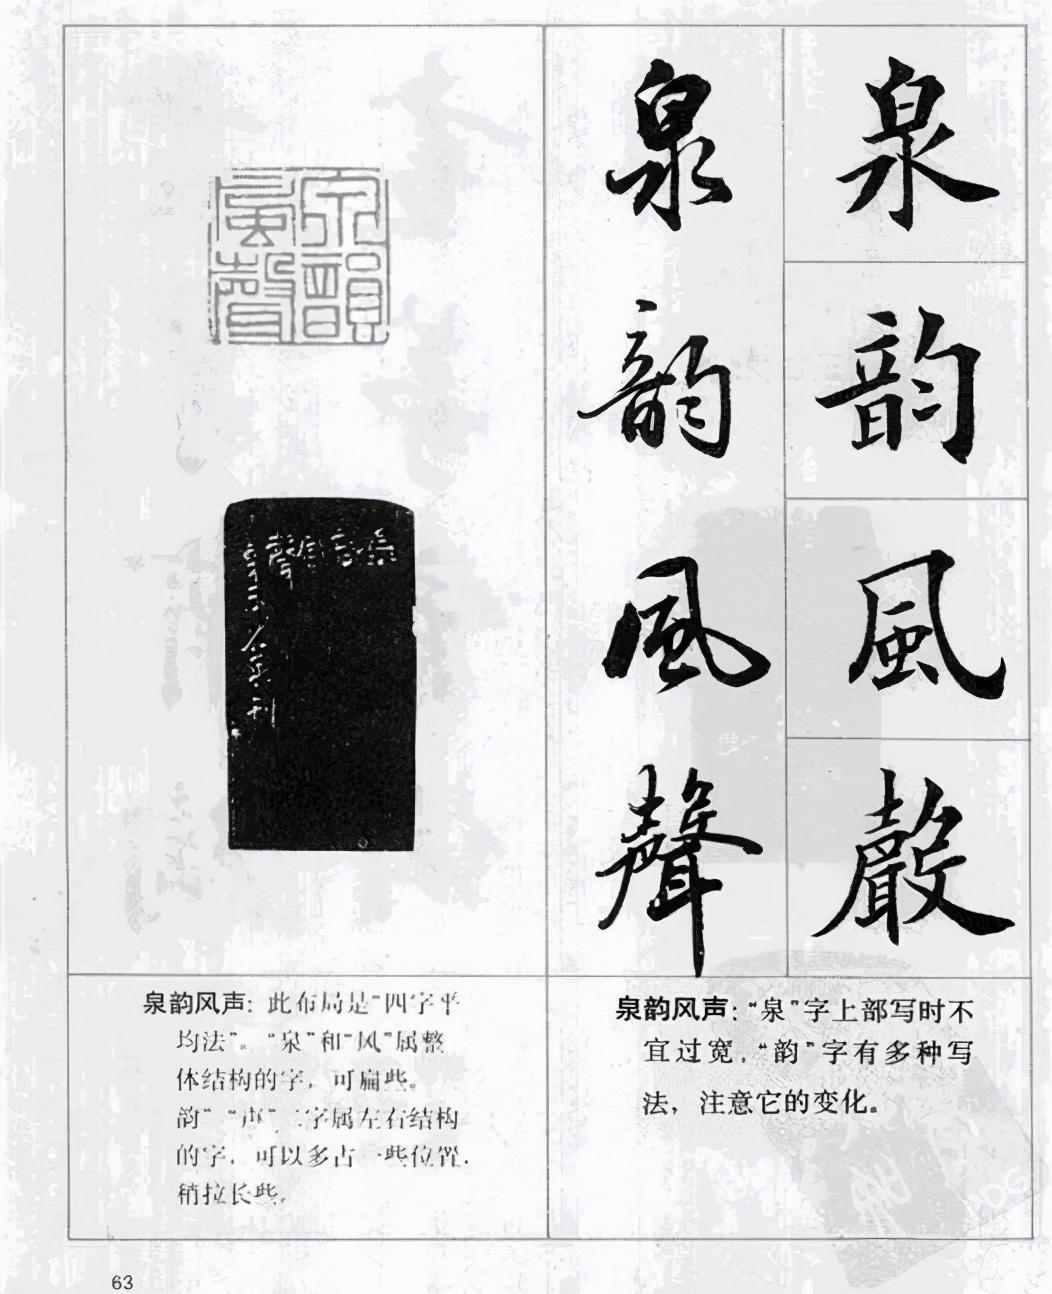 泉
韵
風
聲
泉
韵
風
聲
泉韻
風聲
泉韵風聲
刊
泉韵风声：此布局是“四字平
均法”。“泉”和“风”属整
体结构的字，可扁些。
韵”“声”二字属左右结构
的字，可以多占一些位置，
稍拉长些。
泉韵风声：“泉”字上部写时不
宜过宽，“韵”字有多种写
法，注意它的变化。
63